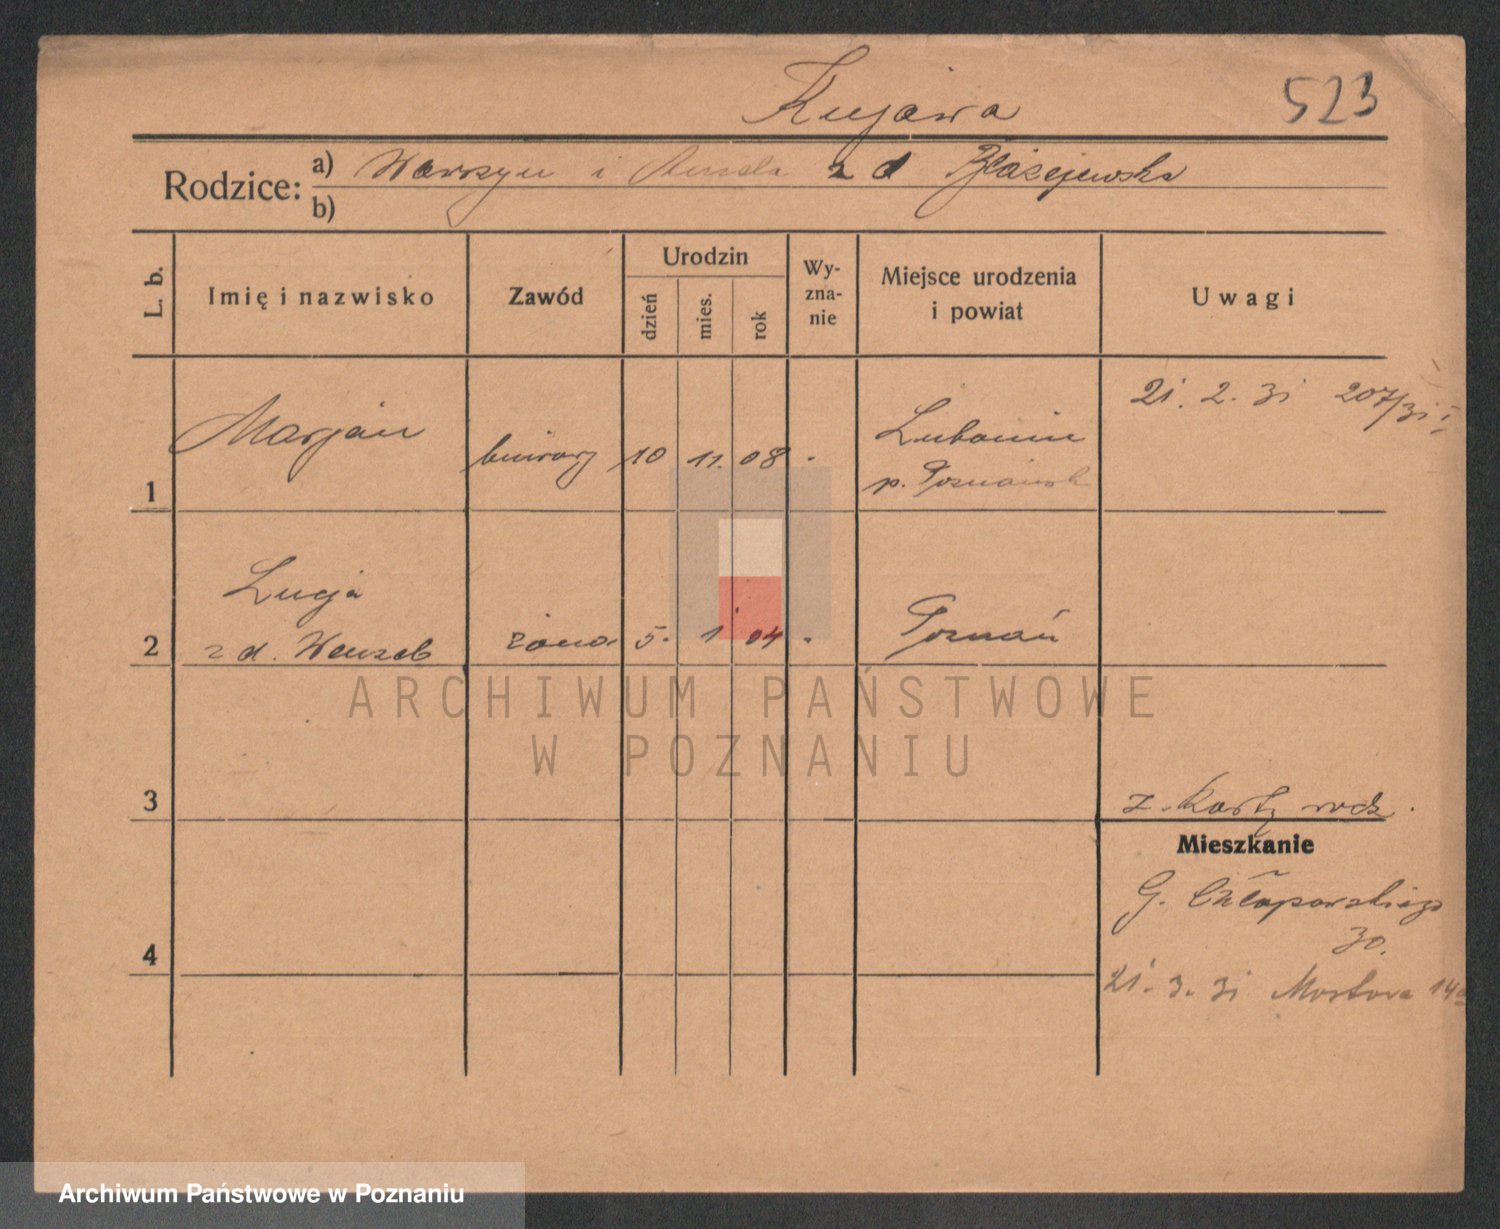 Kujawa
523
Rodzice: a) Wawrzyn i Aniela z d Błażejewska
b)
L. b.
Imię i nazwisko
Zawód
Urodzin
dzień
mies.
rok
Wy-
zna-
nie
Miejsce urodzenia
i powiat
Uwagi
1
Marjan
biurowy
10 11. 08 -
Lubonin
p. Poznański
21. 2. 31 207/31 I
2
Łucja
z d. Wenzel
żona
5. 1 04 -
Poznań
3
z. Karty rodz.
Mieszkanie
G. Chłapowskiego
30.
4
21. 3. 31 Mostowa 14a
ARCHIWUM PAŃSTWOWE
W POZNANIU
Archiwum Państwowe w Poznaniu